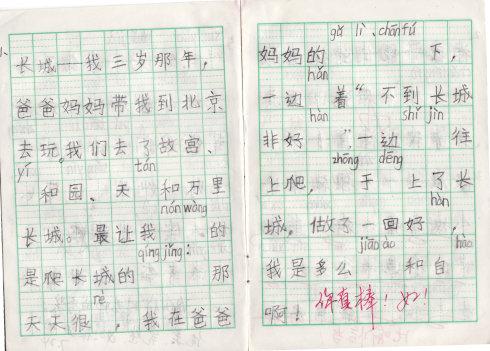 长城——我三岁那年，
爸爸妈妈带我到北京
去玩。我们去了故宫、
yí tán
和园、天 和万里
nán wàng
长城。最让我 的
qíng jǐng：
是爬长城的 那
rè
天天很 ，我在爸爸
gǔ lì、chānfú
妈妈的 下，
hǎn
一边 着“不到长城
hàn shǐ jìn
非好 ”，一边 往
zhōng dēng
上爬， 于 上了长
hàn
城。做了一回好 ，
jiāo ào háo
我是多么 和自
啊！你真棒！好！